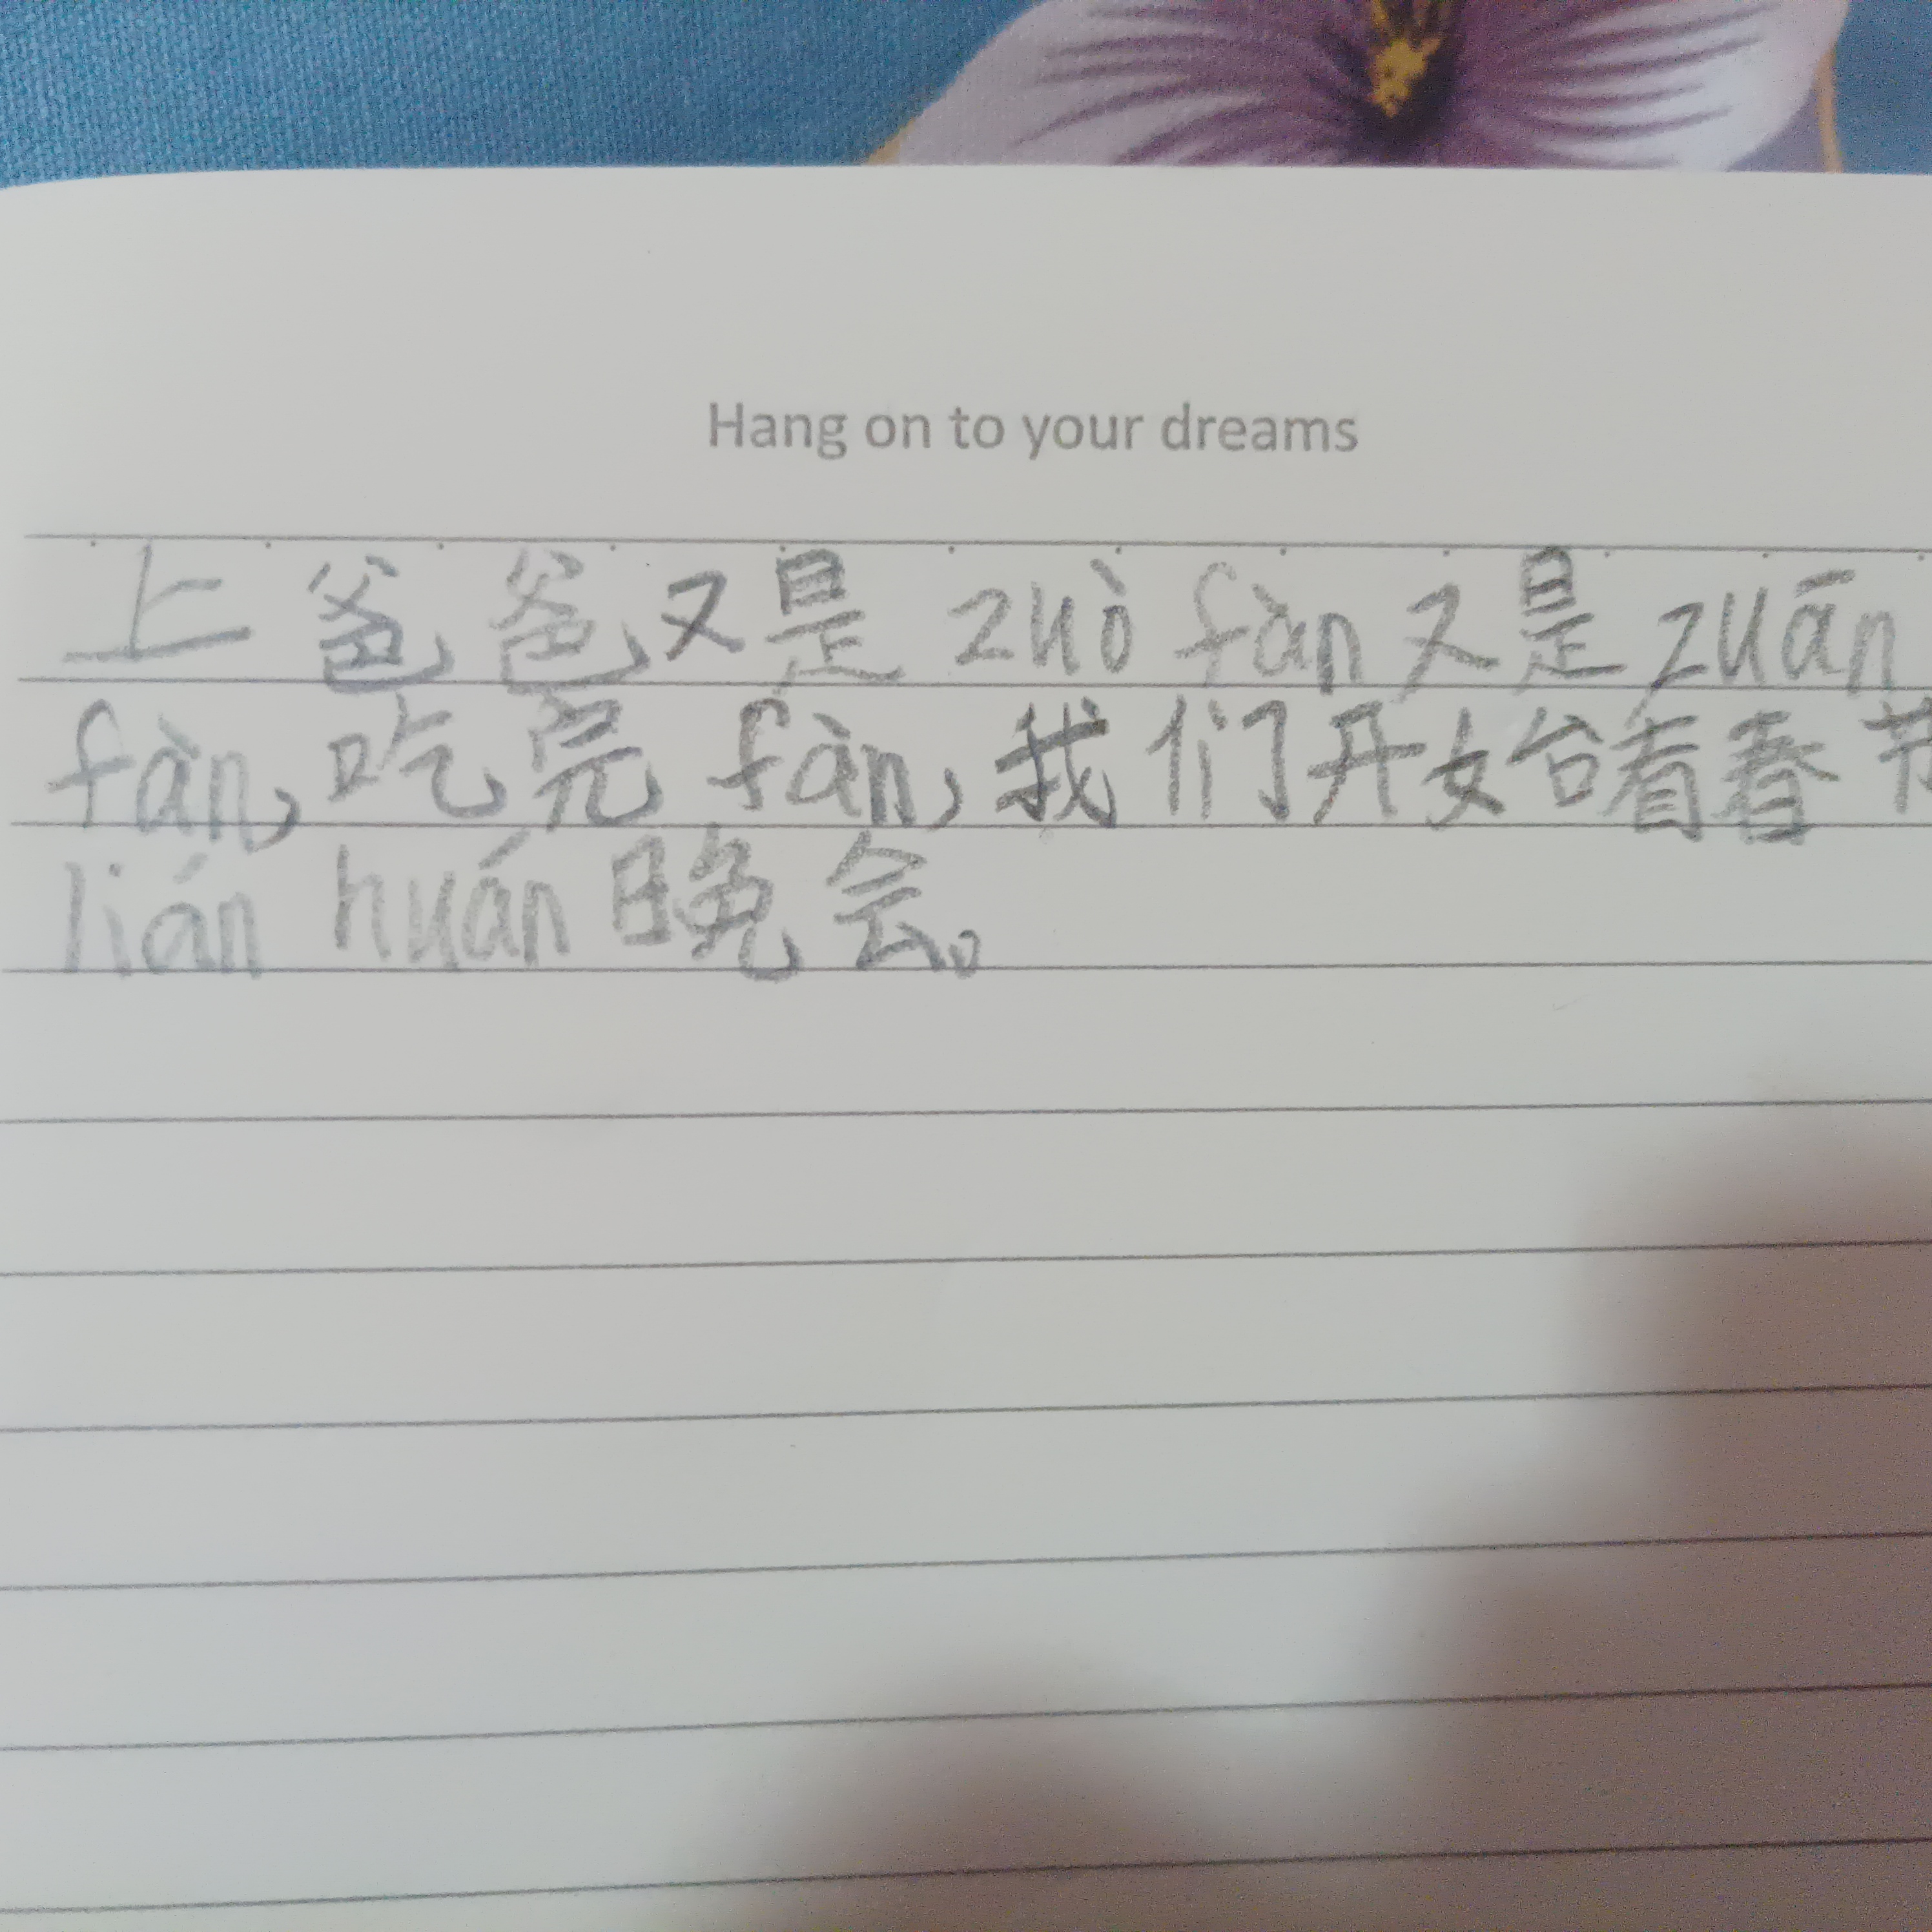 Hang on to your dreams
上爸爸又是zuò fàn又是zuān
fàn,吃完fàn,我们开始看春节
lián huán晚会。